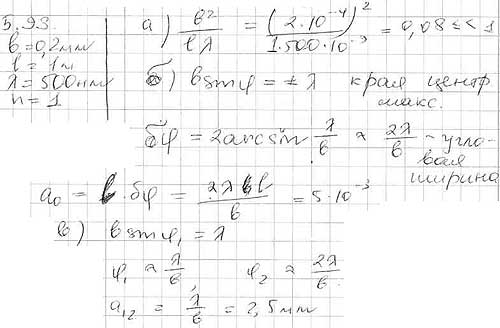 5.93.
b = 0,2 мм
l = 1 м
λ = 500 нм
n = 1
а) b²/lλ = (2·10⁻⁴)²/1·500·10⁻⁹ = 0,08 << 1
б) b sin φ = ± λ края центр
макс.
δφ = 2arcsin λ/b ≈ 2λ/b - угло-
вая
ширина
a₀ = l·δφ = 2λl/b = 5·10⁻³
в) b sin φ₁ = λ
φ₁ ≈ λ/b, φ₂ ≈ 2λ/b
a₁₂ = λ/b = 2,5 мм